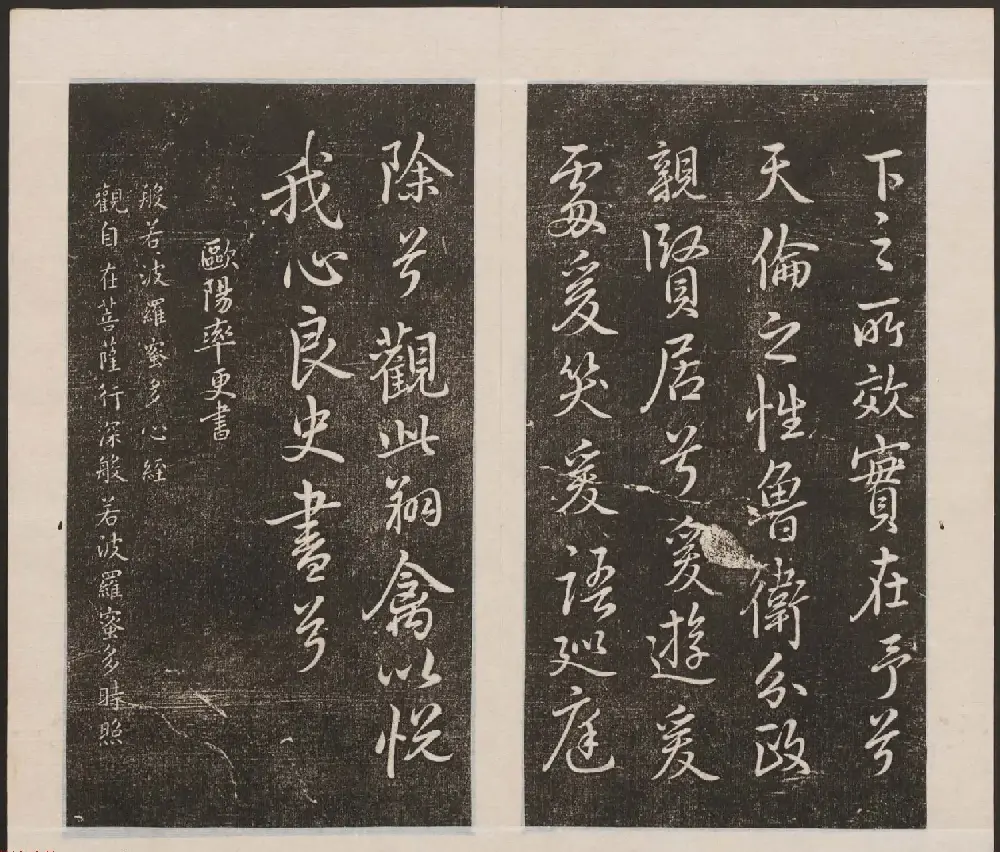 下之所效實在予兮
天倫之性魯衛分政
親賢居兮爰遊爰
處爰笑爰語廵庭
除兮觀此翔禽以悅
我心良史書兮
歐陽率更書
般若波羅蜜多心経
觀自在菩薩行深般若波羅蜜多時照